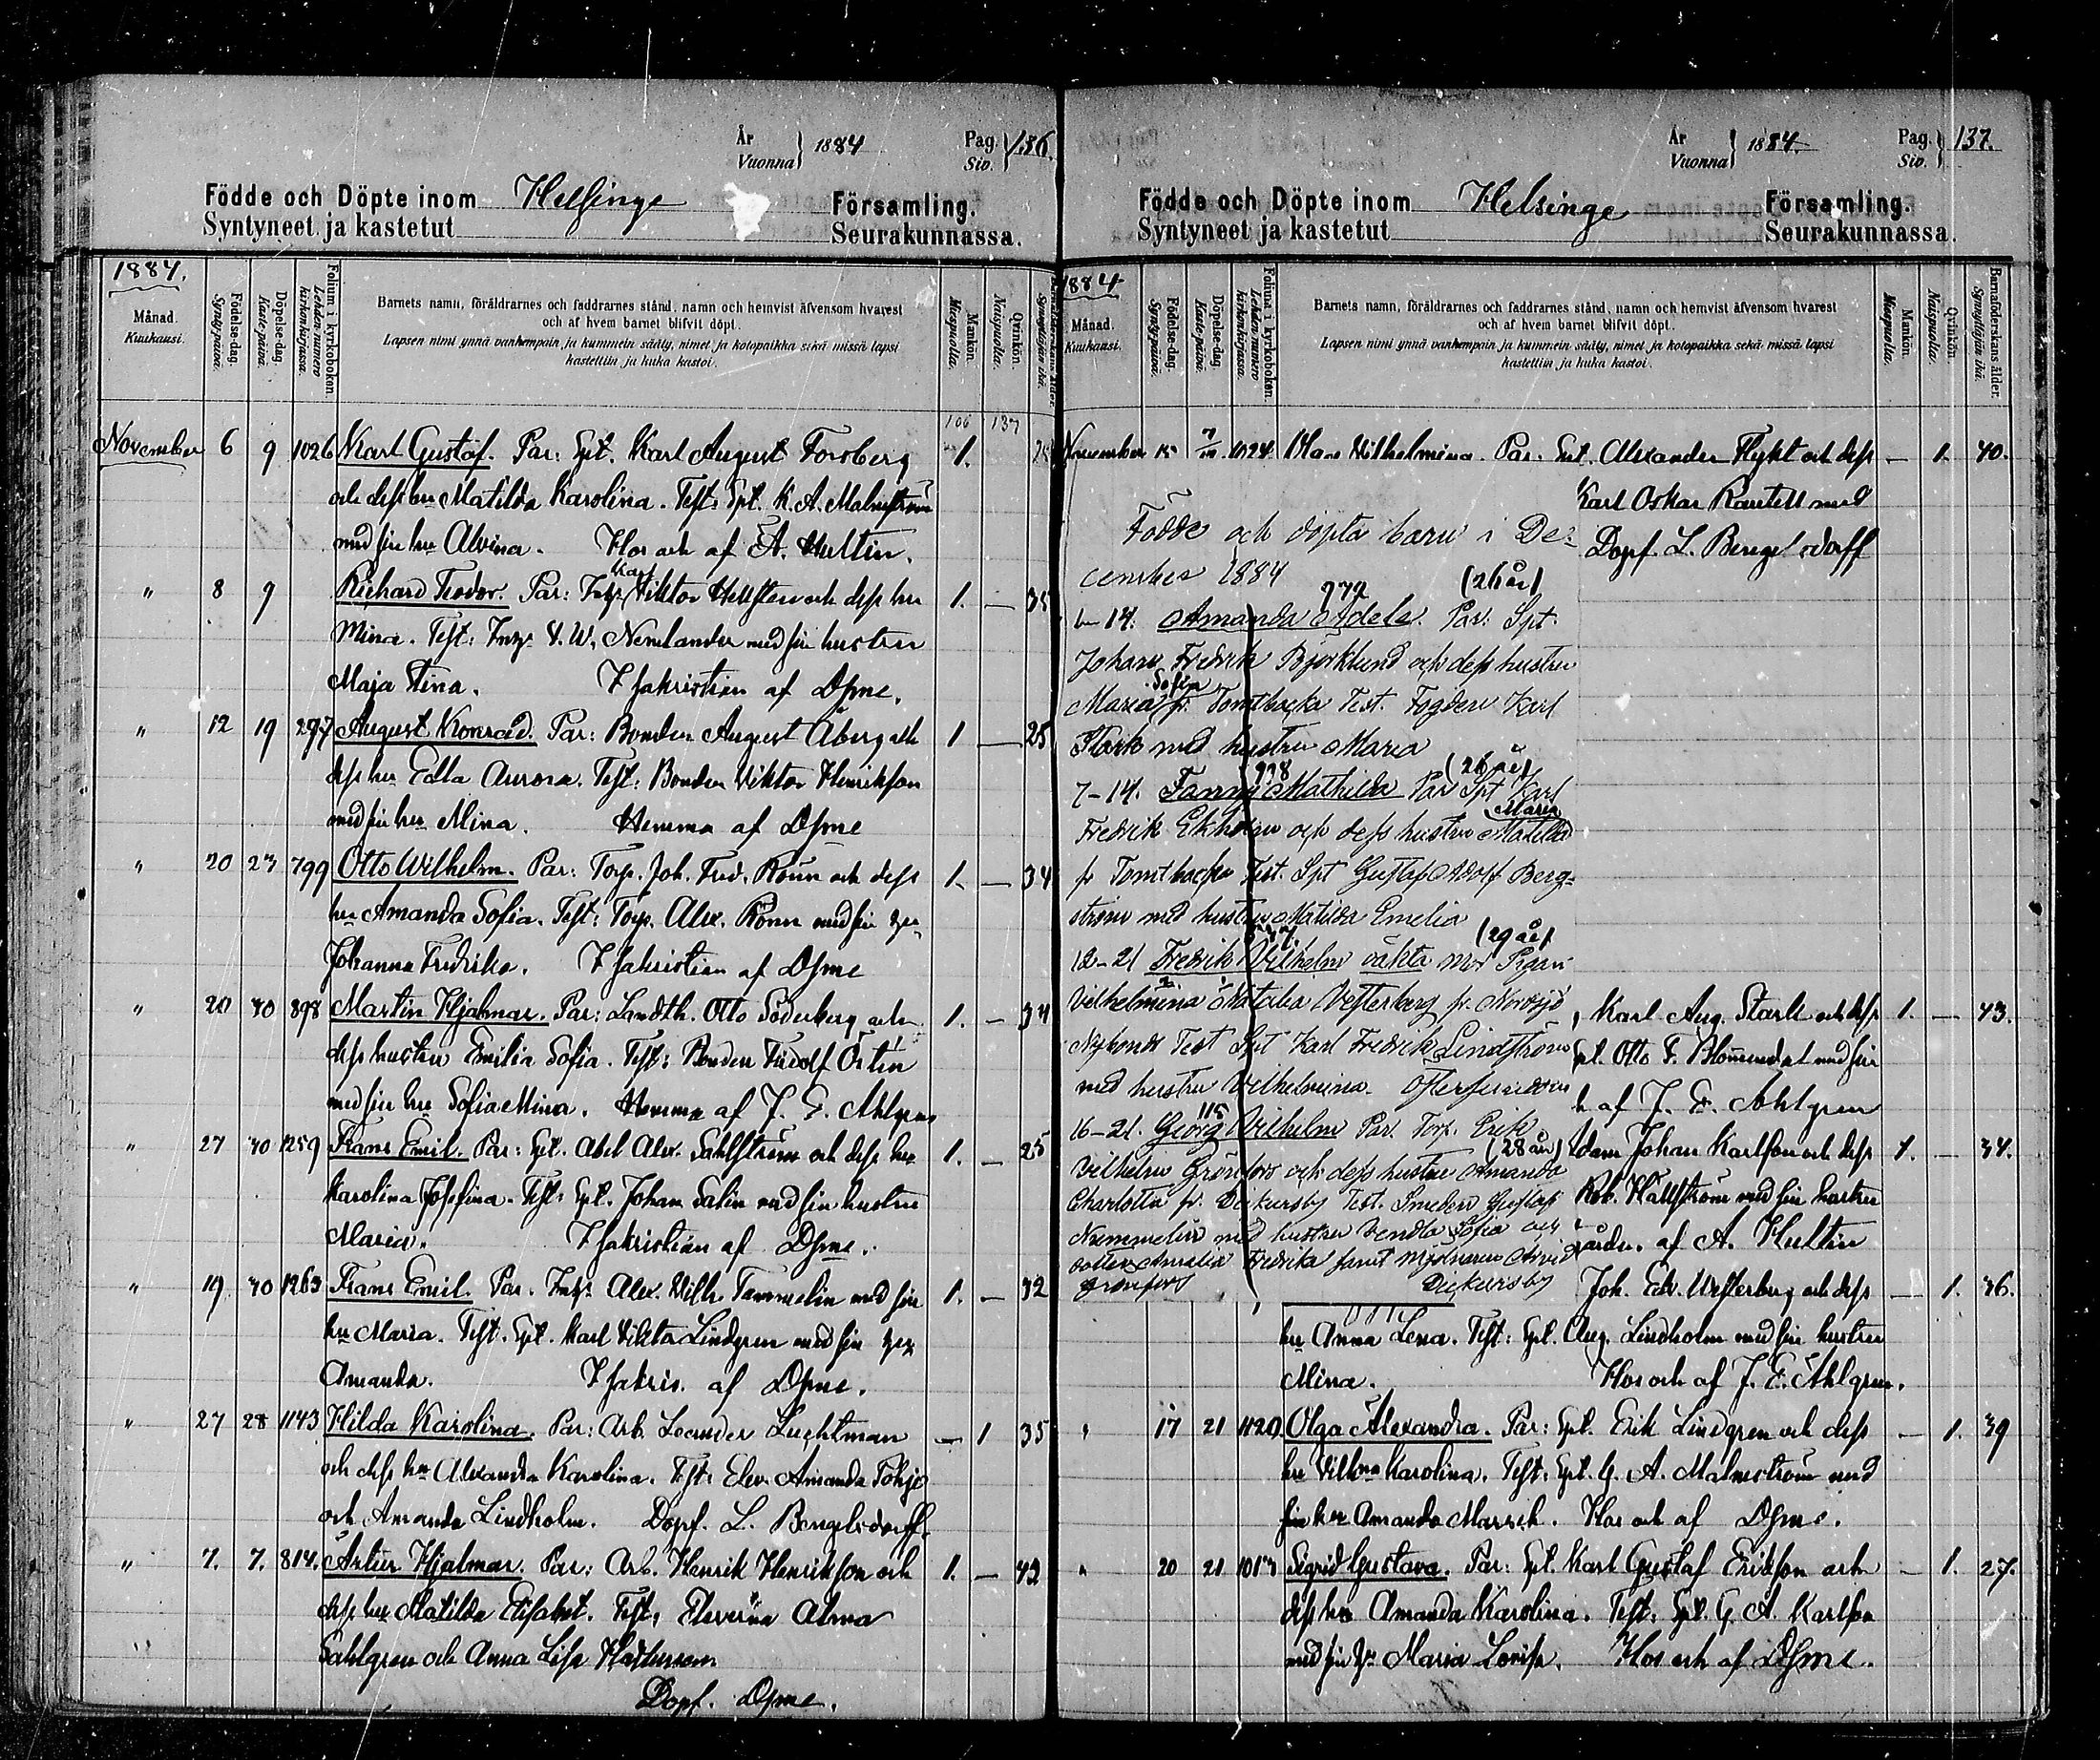 År
Vuonna } 1884
Pag.
Siv. } 136.
Födde och Döpte inom Helsinge Församling.
Syntyneet ja kastetut Seurakunnassa.
1884.
Månad.
Kuukausi.
Födelse-dag.
Syntypäivä.
Döpelse-dag.
Kastepäivä.
Folium i kyrkoboken.
Lehden numero
kirkonkirjassa.
Barnets namn, föräldrarnes och faddrarnes stånd, namn och hemvist äfvensom hvarest
och af hvem barnet blifvit döpt.
Lapsen nimi ynnä vanhempain ja kummein sääty, nimet ja kotopaikka sekä missä lapsi
kastettiin ja kuka kastoi.
Mankön.
Miespuolia.
Qvinkön.
Naispuolia.
106 137
November 6 9 1026 Karl Gustaf. Par: Spt. Karl August Forsberg 1.
och dess hu Matilda Karolina. Test: Spt. K. A. Malmström
med sin hu Alvina. Hos och af A. Hultin.
" 8 9 Richard Teodor. Par: Inhys Karl Viktor Hellsten och dess hu 1. — 35
Mina. Test: Inhys V. W. Nemlander med sin hustru
Maja Stina. I sakristian af Dsme.
" 12 19 297 August Konrad. Par: Bonden August Åberg och 1 — 25
dess hu Edla Aurora. Test: Bonden Viktor Henriksson
med sin hu Mina. Hemma af Dsme
" 20 23 799 Otto Wilhelm. Par: Torp. Joh. Fred. Rönn och dess 1. — 34
hu Amanda Sofia. Test: Torp. Alex. Rönn med sin hu
Johanna Fredrika. I sakristian af Dsme
" 20 30 898 Martin Hjalmar. Par: Landth. Otto Söderberg och 1. — 34
dess hustru Emilia Sofia. Test: Bonden Fridolf Östen
med sin hu Sofia Mina. Hemma af J. E. Ahlgren
" 27 30 1259 Frans Emil. Par: Spt. Abel Alex. Sahlström och dess hu 1. — 25
Karolina Josefina. Test: Spt. Johan Salin med sin hustru
Maria. I sakristian af Dsme.
" 19 30 1263 Frans Emil. Par. Inhys Alex. Wilh. Tammelin med sin 1. — 32
hu Maria. Test. Spt. Karl Viktor Lindgren med sin hu
Amanda. I sakris. af Dsme.
" 27 28 1143 Hilda Karolina. Par: Arb. Leander Luchtman — 1 35
och dess hu Alexandra Karolina. Test: Elev. Amanda
och Amanda Lindholm. Döpf. L. Bengelsdorff.
" 7. 7. 814. Artur Hjalmar. Par: Arb. Henrik Henriksson och 1. — 42
dess hu Matilda Elisabet. Test: Eleverna Alma
Sahlgren och Anna Lisa
Döpf. Dsme.
År
Vuonna } 1884.
Pag.
Siv. } 137.
Födde och Döpte inom Helsinge Församling.
Syntyneet ja kastetut Seurakunnassa.
1884
Månad.
Kuukausi.
Födelse-dag.
Syntypäivä.
Döpelse-dag.
Kastepäivä.
Folium i kyrkoboken.
Lehden numero
kirkonkirjassa.
Barnets namn, föräldrarnes och faddrarnes stånd, namn och hemvist äfvensom hvarest
och af hvem barnet blifvit döpt.
Lapsen nimi ynnä vanhempain ja kummein sääty, nimet ja kotopaikka sekä missä lapsi
kastettiin ja kuka kastoi.
Mankön.
Miespuolia.
Qvinkön.
Naispuolia.
Barnaföderskans ålder.
Synnyttäjän ikä.
November 15 1024 Wilhelmina. Par: Spt. Alexander Flykt och dess — 1. 40.
Karl Oskar Rantell med
Döpf. L. Bengelsdorff
Födde och döpta barn i De-
cember 1884
772 (26 år)
14. Amanda Adele. Par: Spt.
Johan Fredrik Björklund och dess hustru
Maria Sofia fr. Tomtbacka Test. Fogden Karl
Stark med hustru Maria
778 (26 år)
7-14. Fanny Mathilda Par Spt Karl
Fredrik Ekholm och dess hustru Maria Matilda
fr Tomtbacka Test. Spt Gustaf Adolf Berg-
ström med hustru Matilda Emelia
(29 år)
12-21 Fredrik Vilhelm oäkta mor Pigan
Vilhelmina Natalia Vesterberg fr. Nordsjö
Nybondt Test Spt Karl Fredrik Lindström
med hustru Vilhelmina.
115
16-21. Georg Vilhelm Par. Torp. Erik
(28 år)
Vilhelm Grönfors och dess hustru Amanda
Charlotta fr. Dickursby Test. Smeden Gustaf
Nemmelin med hustru Vendla Sofia och
dotter Amalia Fredrika samt mjölnaren Arvid
Grönfors Dickursby
Karl Aug. Stark och dess 1. — 43.
Spt. Otto F. Blommendal med sin
af J. E. Ahlgren
Adam Johan Karlsson och dess 1. — 34.
Rob. Hällström med sin hustru
gården. af A. Hultin
Joh. Edv. Westerberg och dess — 1. 36.
hu Anna Lena. Test: Spt. Aug. Lindholm med sin hustru
Mina. Hos och af J. E. Ahlgren.
" 17 21 1120 Olga Alexandra. Par: Spt. Erik Lindgren och dess — 1. 39
hu Viktoria Karolina. Test: Spt. G. A. Malmström med
sin hu Amanda Hos och af Dsme.
" 20 21 1013 Sigrid Gustava. Par: Spt. Karl Gustaf Erikson och — 1. 27.
dess hu Amanda Karolina. Test. Spt. G. A. Karlson
med sin hu Maria Lovisa. Hos och af Dsme.